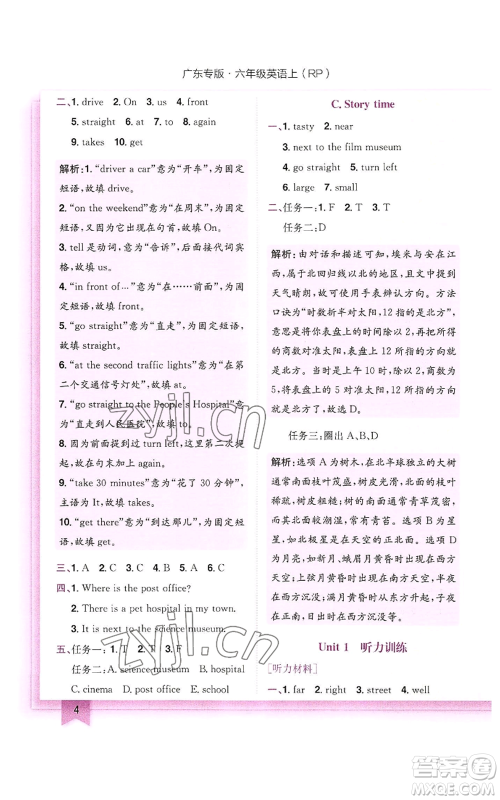 广东专版·六年级英语上(RP)
二、1. drive 2. On 3. us 4. front
5. straight 6. at 7. to 8. again
9. takes 10. get
解析:1. “driver a car”意为“开车”,为固定
短语,故填 drive。
2. “on the weekend”意为“在周末”,为固
定短语,故填 On。
3. tell 是动词,意为“告诉”,后接代词宾
格,故填 us。
4. “in front of...”意为“在……前面”,为
固定短语,故填 front。
5. “go straight”意为“直走”,为固定短
语,故填 straight。
6. “at the second traffic lights”意为“在第
二个交通信号灯处”,故填 at。
7. “go straight to the People's Hospital”意
为“直走到人民医院”,故填 to。
8. 因为前面提到 turn left,后面又出现
turn left,所以是再次左转,故填
again。
9. “take 30 minutes”意为“花了 30 分钟”,
主语为 It,故填 takes。
10. “get there”意为“到达那儿”,为固定短
语,故填 get。
三、1. A 2. C 3. B 4. C 5. A
四、1. Where is the post office?
2. There is a pet hospital in my town.
3. It is next to the science museum.
五、任务一:A. science museum B. hospital
任务二:C. cinema D. post office E. school
4
C. Story time
一、1. tasty 2. near
3. next to the film museum
4. go straight 5. turn left
6. large 7. small
二、任务一:1. F 2. T 3. T
任务二:D
解析:由对话和描述可知,埃米与安在江
西,属于北回归线以北的地方,文中提到
天气晴朗,故可使用手表辨认方向。方法
口诀为“时数折半对太阳,12 指的是北方”,
意思是将你表盘上的时间除以 2,用
表盘上的时刻对准太阳,表盘上 12 所指
就是北方。当时是上午 10 时,除以 2 后
是 5 时,表盘上 5 对准太阳,12 所指的方
向为北方,故选 D。
任务三:圈出 A、B、D
解析:选项 A 为树木,在北半球独立的大树
通常南面的枝叶茂盛,而北面的枝叶
稀疏,树皮粗糙;树的南面通常青草茂密,
而北面较潮湿,常有青苔。选项 B 为星
星,北极星是在天空的正北面。选项
D 为月亮,如新月、峨眉月黄昏时在西方
天空,上弦月黄昏时出现在南方天空,半
夜时在西方沉没;满月黄昏时从东方升起,
日出时在西方沉没等。
Unit 1 听力训练
[听力材料]
一、1. far 2. right 3. street 4. well
zyjl.cn
zyjl.cn